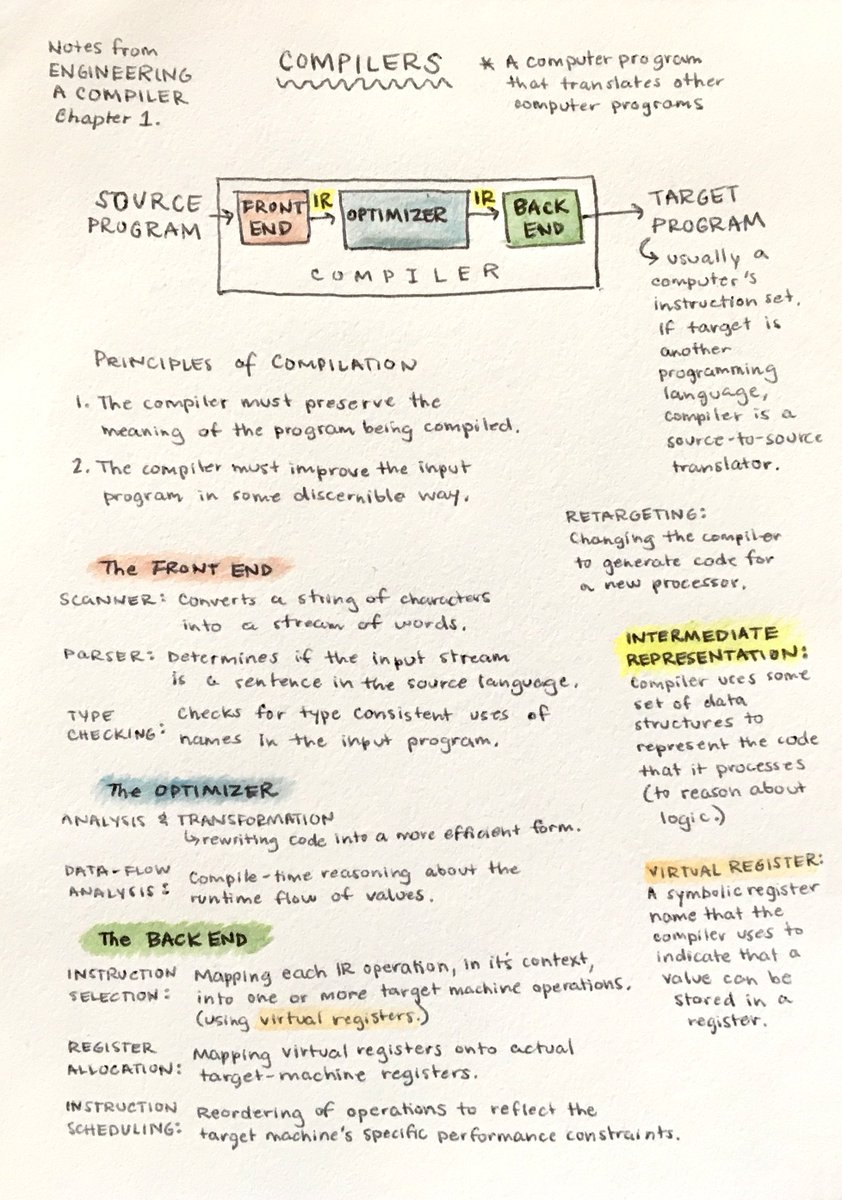 Notes from
ENGINEERING
A COMPILER
Chapter 1.
COMPILERS
* A computer program
that translates other
computer programs
SOURCE
PROGRAM
FRONT
END
IR
OPTIMIZER
IR
BACK
END
COMPILER
TARGET
PROGRAM
↳ usually a
computer's
instruction set.
if target is
another
programming
language,
compiler is a
source-to-source
translator.
PRINCIPLES of COMPILATION
1. The compiler must preserve the
meaning of the program being compiled.
2. The compiler must improve the input
program in some discernible way.
RETARGETING:
Changing the compiler
to generate code for
a new processor.
The FRONT END
SCANNER: Converts a string of characters
into a stream of words.
PARSER: Determines if the input stream
is a sentence in the source language.
TYPE
CHECKING:
Checks for type consistent uses of
names in the input program.
INTERMEDIATE
REPRESENTATION:
Compiler uses some
set of data
structures to
represent the code
that it processes
(to reason about
logic.)
The OPTIMIZER
ANALYSIS & TRANSFORMATION
↳ rewriting code into a more efficient form.
DATA-FLOW
ANALYSIS:
Compile-time reasoning about the
runtime flow of values.
VIRTUAL REGISTER:
A symbolic register
name that the
compiler uses to
indicate that a
value can be
stored in a
register.
The BACK END
INSTRUCTION
SELECTION:
Mapping each IR operation, in it's context,
into one or more target machine operations.
(using virtual registers.)
REGISTER
ALLOCATION:
Mapping virtual registers onto actual
target-machine registers.
INSTRUCTION
SCHEDULING:
Reordering of operations to reflect the
target machine's specific performance constraints.